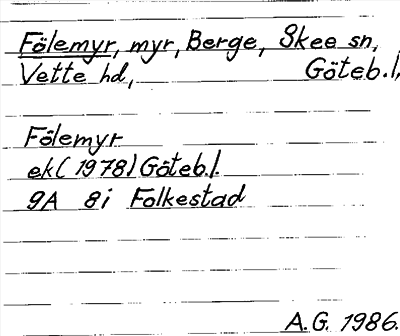 Fölemyr, myr, Berge, Skee sn,
Vette hd, Göteb.l,
Fölemyr
ek(1978) Göteb.l.
9A 8i Folkestad
A.G. 1986.